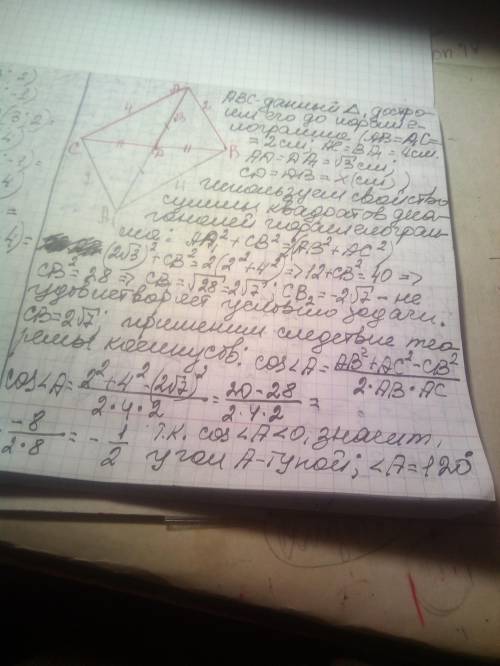 ABC-данный Δ, достро-
им его до паралле-
лограмма
= 2см; AC = BA₁ = 4см.
AD = DA₁ = √3 см;
CD = DB = x(см)
используем свойство
суммы квадратов диа-
гоналей параллелограм-
ма: AA₁² + CB² = 2(AB² + AC²)
(2√3)² + CB² = 2(2² + 4²) => 12 + CB² = 40 =>
CB² = 28 => CB₁ = √28 = 2√7; CB₂ = -2√7 - не
удовлетворяет условию задачи.
CB = 2√7; применим следствие тео
ремы косинусов: cos<A = AB² + AC² - CB² / 2·AB·AC
cos<A = 2² + 4² - (2√7)² / 2·4·2 = 20 - 28 / 2·4·2 =
-8 / 2·8 = - 1/2 Т.к. cos<A<0, значит,
угол A-тупой; <A = 120°
4
2
C
B